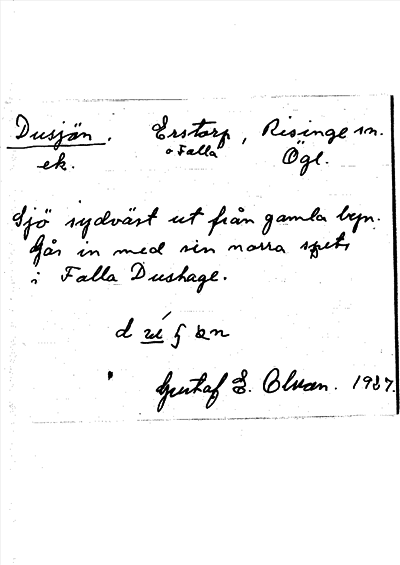 Dusjön. Erstorp, Risinge sn.
ek. o Falla Ögl.
Sjö sydväst ut från gamla byn.
Går in med sin norra spets
i Falla Dushage.
Gustaf E. Olvan. 1937.